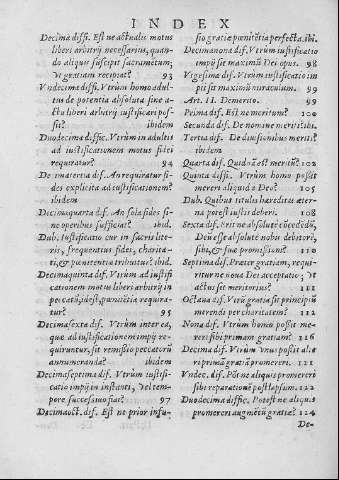 INDEX
Decima diffi. Est ne actualis motus
liberi arbitrij necessarius, quan-
do aliquis suscipit sacramētum;
vt gratiam recipiat? 93
Vndecima diffi. Vtrùm homo adul-
tus de potentia absoluta sine a-
ctu liberi arbitrij iustificari pos-
sit? ibidem
Duodecima diffic. Vtrùm in adultis
ad iustificationem motus fidei
requiratur? 94
De imatereia dif. An requiratur fi-
des explicita ad iustificationem?
ibidem
Decimaquarta dif. An sola fides si-
ne operibus sufficiat? ibid.
Dub. Iustificatio cur in sacris lite-
ris, frequentius fidei, charita-
ti, & pœnitentia tribuitur? ibid.
Decimaquinta dif. Vtrùm ad iustifi
cationem motus liberi arbitrij in
peccatū, idest, pœnitētia requira-
tur? 95
Decimasexta dif. Vtrùm inter ea,
que ad iustificationem impij re-
quiruntur, sit remissio peccatorū
annumeranda? ibidem
Decimaseptima dif. Vtrùm iustifi-
catio impij in instanti, vel tem-
pore successiuo fiat? 97
Decimaoct. dif. Est ne prior infu-
sio gratiæ pœnitētia perfecta. ibi.
Decimanona dif. Vtrùm iustificatio
impij sit maximū Dei opus. 98
Vigesima dif. Vtrùm iustificatio im
pij sit maximū miraculum. 99
Art. II. De merito. 99
Prima dif. Est ne meritum? 100
Secunda dif. De nomine meriti. ibi.
Tertia dif. De diuisionibus meriti?
ibidem
Quarta dif. Quid nā est meritū? 102
Quinta diffi. Vtrùm homo possit
mereri aliquid a Deo? 105
Dub. Quibus titulis hæreditas æter-
na potest iustis deberi. 108
Sexta dif. Erit ne absolutè cōcedēdū,
Deū esse absolutè nobis debitorē,
sibi, & suæ promissioni? 110
Septima dif. Præter gratiam, requi-
ritur ne noua Dei acceptatio; vt
actus sit meritorius? 111
Octaua dif. Vtrū gratia sit principiū
merendi per charitatem? 112
Nona dif. Vtrùm homo possit me-
reri sibi primam gratiam? 116
Decima dif. Vtrùm vnus possit alte
ri primā gratiā promereri. 121
Vndec. dif. Pōt ne aliquis promereri
sibi reparationē post lapsum. 122
Duodecima diffic. Potest ne aliquis
promereri augmētū gratiæ? 124
De-